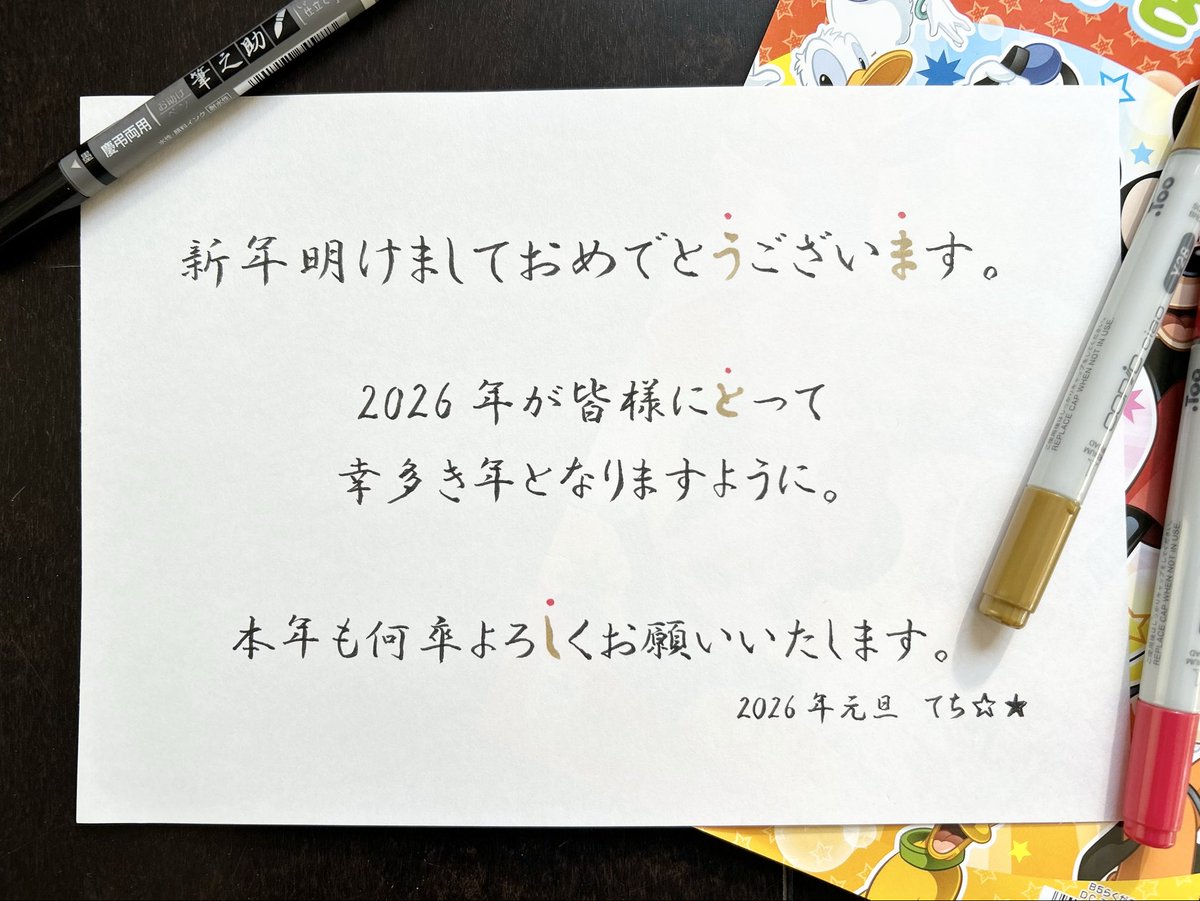 筆之助
慶弔両用
墨
水性顔料インク
新年明けましておめでとうございます。
2026年が皆様にとって
幸多き年となりますように。
本年も何卒よろしくお願いいたします。
2026年元旦 てち☆★
.Too
copic ciao
REPLACE CAP WHEN NOT IN USE.
.Too
REPLACE CAP WHEN NOT IN USE.